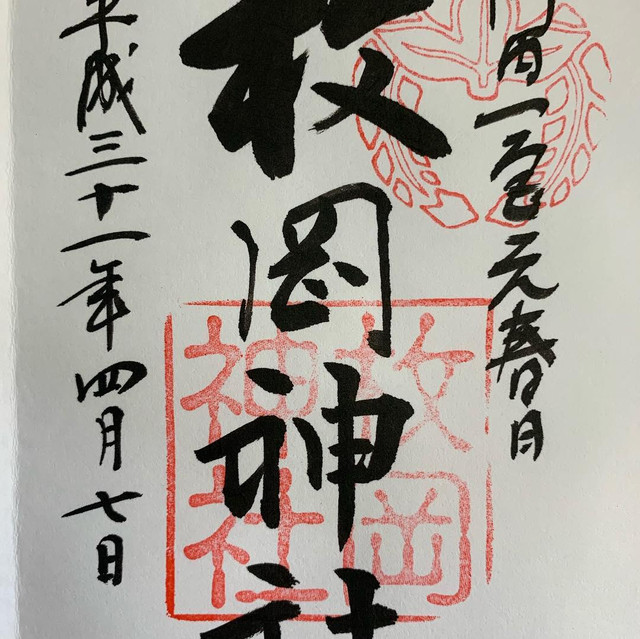 河内一宮元春日
枚岡神社
平成三十一年四月七日
枚岡
神社